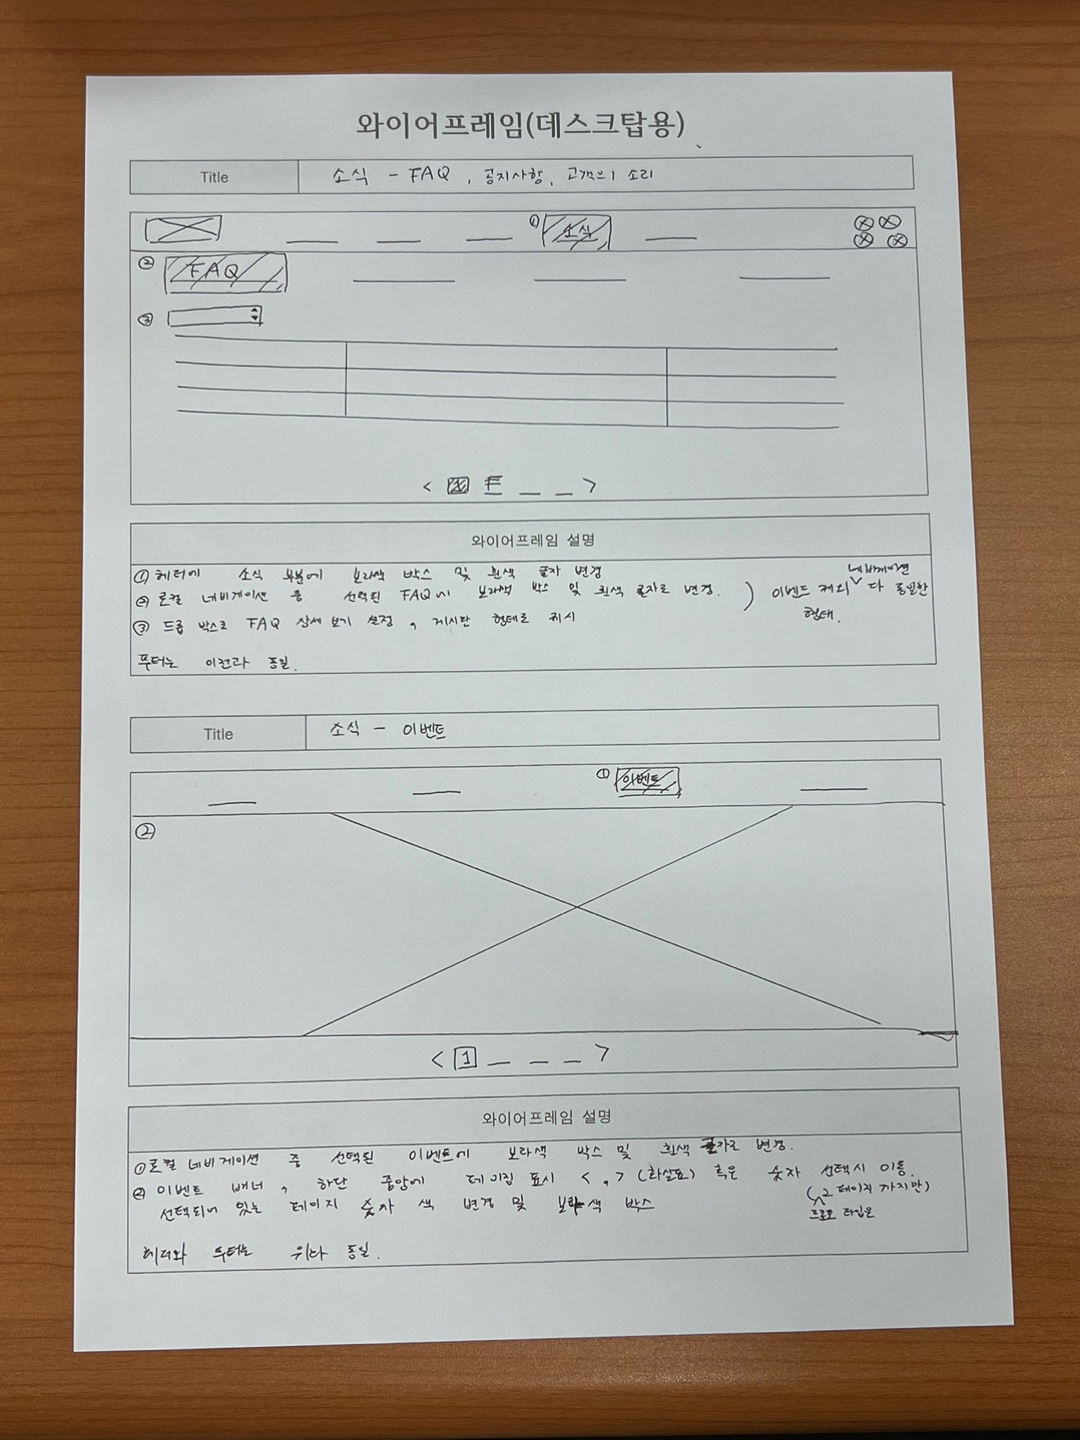 와이어프레임(데스크탑용)
Title
소식 - FAQ, 공지사항, 고객의 소리
① 소식
② FAQ
③
< 1 >
와이어프레임 설명
① 헤더에 소식 부분에 보라색 박스 및 흰색 글자 변경
② 로컬 네비게이션 중 선택된 FAQ에 보라색 박스 및 흰색 글자로 변경.
③ 드롭 박스로 FAQ 상세 보기 설정, 게시판 형태로 게시
) 이벤트 제외 네비게이션 다 동일한
형태.
푸터는 이전과 동일.
Title
소식 - 이벤트
① 이벤트
②
< 1 >
와이어프레임 설명
① 로컬 네비게이션 중 선택된 이벤트에 보라색 박스 및 흰색 글자로 변경.
② 이벤트 배너, 하단 중앙에 페이징 표시 <, > (화살표) 혹은 숫자 선택시 이동.
선택되어 있는 페이지 숫자 색 변경 및 보라색 박스
2 페이지 까지만)
프로토 타입은
헤더와 푸터는 위와 동일.